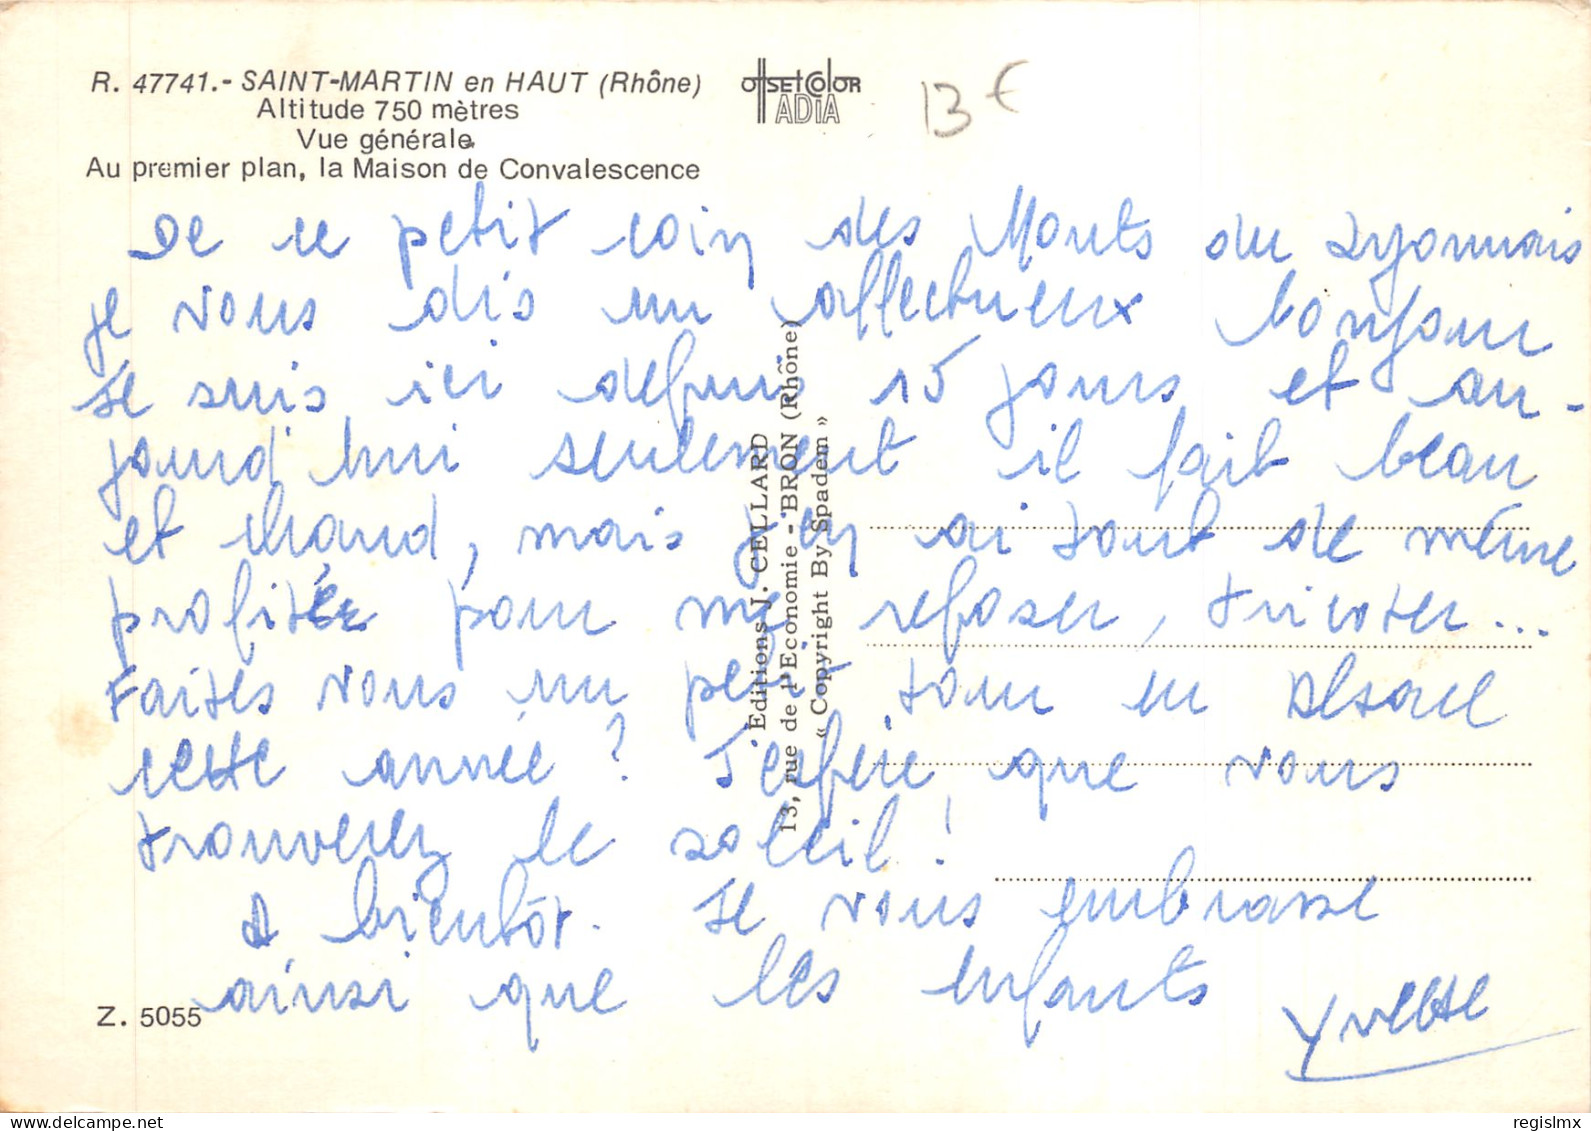 R. 47741.- SAINT-MARTIN en HAUT (Rhône)
Altitude 750 mètres
Vue générale
Au premier plan, la Maison de Convalescence
OffsetColor
ADIA
13 €
De ce petit coin des Monts du Lyonnais
je vous dis un affectueux bonjour
Je suis ici depuis 15 jours et au-
jourd'hui seulement il fait beau
et chaud, mais j'en ai tout de même
profiter pour me reposer, tricoter...
Faites vous un petit tour en Alsace
cette année ? J'espère que vous
trouverez le soleil !
A bientôt. Je vous embrasse
ainsi que les enfants
Yvette
Editions J. CELLARD
13, rue de l'Economie - BRON (Rhône)
« Copyright By Spadem »
Z. 5055
delcampe.net
regislmx